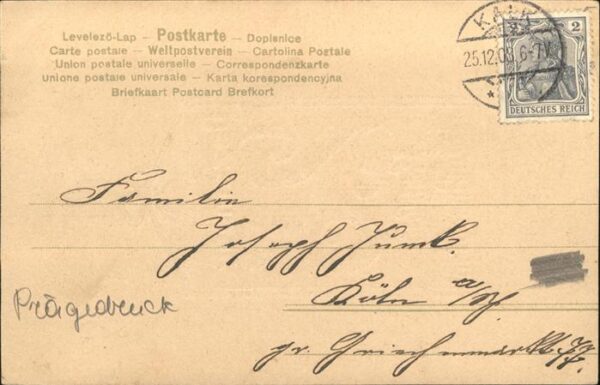 Levelező-Lap – Postkarte – Dopisnice
Carte postale – Weltpostverein – Cartolina Postale
Union postale universelle – Correspondenzkarte
Unione postale universale – Karta korespondencyjna
Briefkaart Postcard Brefkort
KALK
25.12.03. 6-7V.
2
DEUTSCHES REICH
Familie
Joseph Junk.
Köln a/Rh
gr. Griechenmarkt 77.
Prägedruck